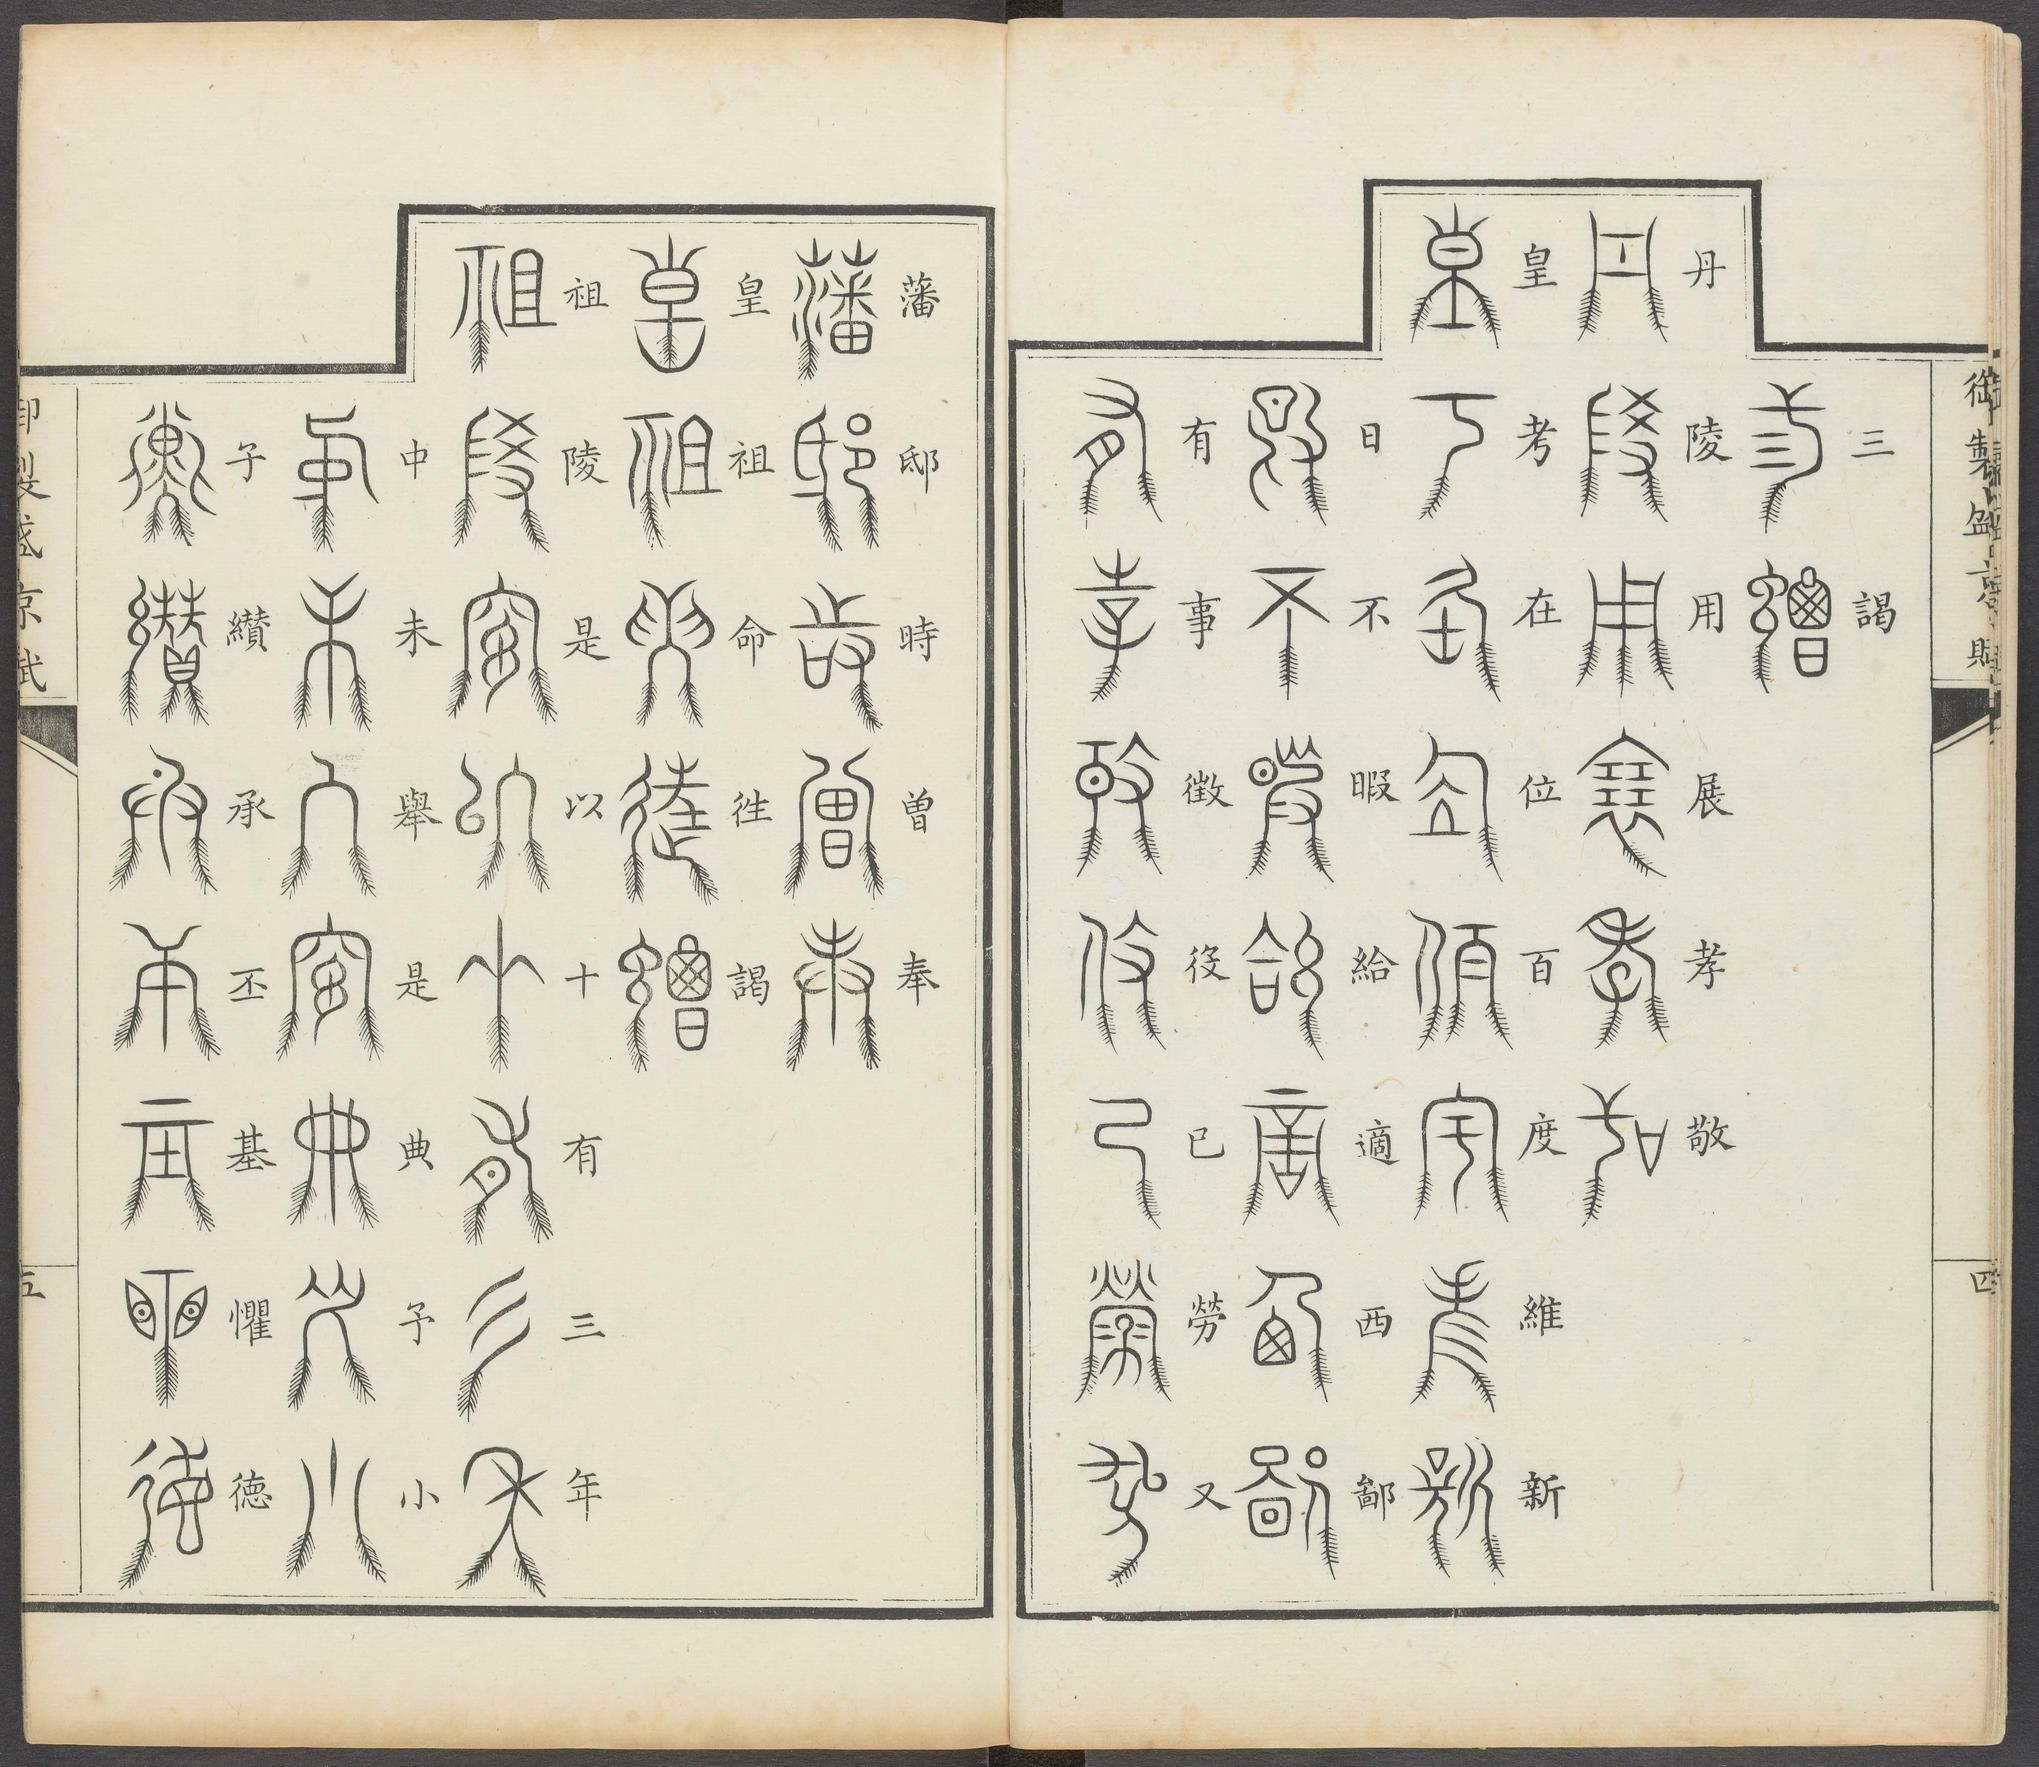 三謁
丹陵用展孝敬
皇考在位百度維新
日不暇給適西鄙
有事徵役已勞又
藩邸時曽奉
皇祖命徃謁
祖陵是以十有三年
中未舉是典予小
子纘承丕基懼德
御製盛京賦
四
御製盛京賦
五